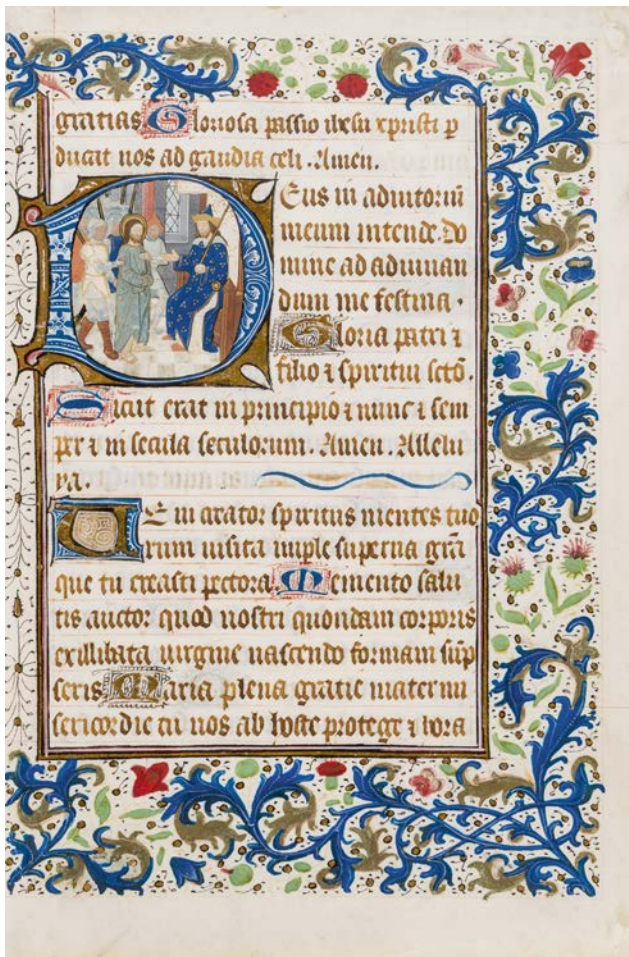 gratias Gloriosa passio ihesu xpristi p
ducat nos ad gaudia celi. Amen.
Deus in adiutoriū
meum intende. Do
mine ad adiuuan
dum me festina.
Gloria patri ⁊
filio ⁊ spiritui scto.
Sicut erat in principio ⁊ nunc ⁊ sem
per ⁊ in secula seculorum. Amen. Allelu
ya.
Veni creator spiritus mentes tuo
rum uisita imple superna grā
que tu creasti pectora. Memento salu
tis auctor quod nostri quondam corporis
exillibata uirgine nascendo formam sūp
seris Maria plena gratie mater mi
sericordie tu nos ab hoste protege ⁊ hora